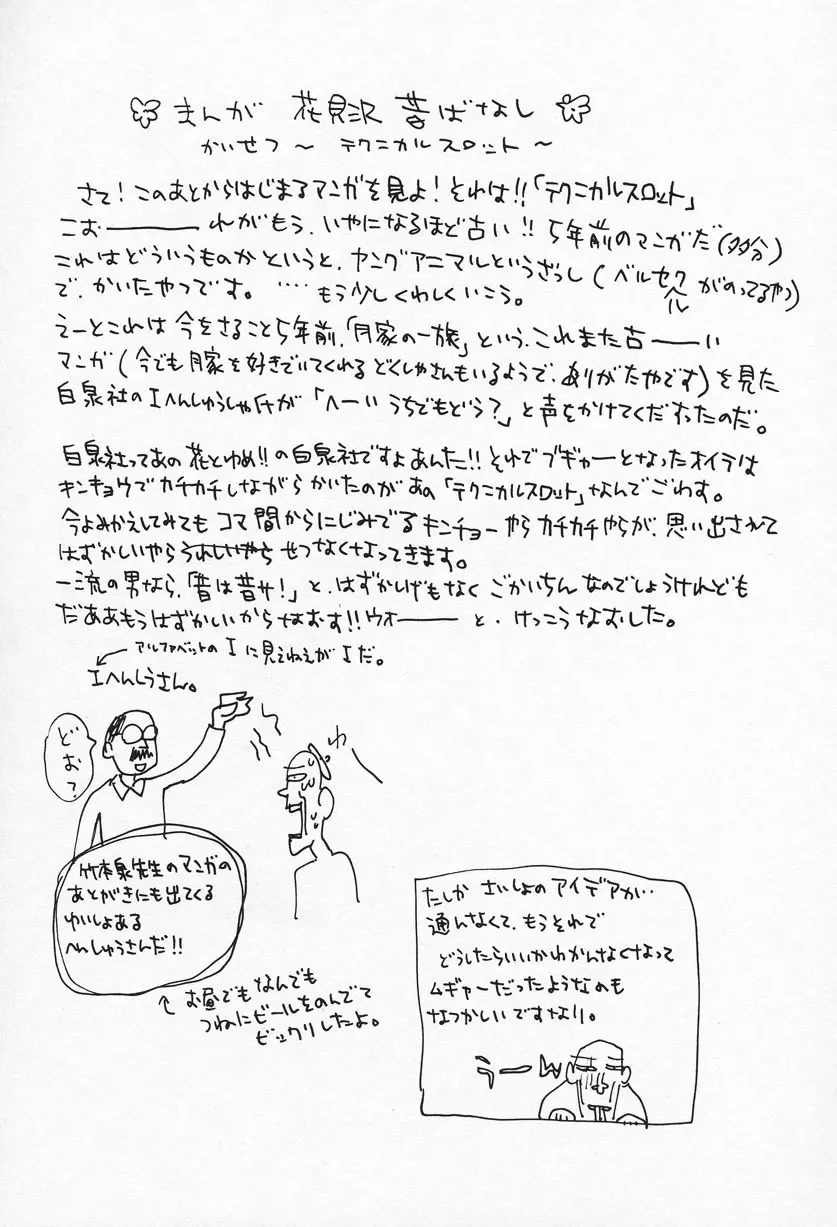 まんが 花見沢 昔ばなし
かいせつ〜 テクニカルスロット 〜
さて！このあとからはじまるマンガを見よ！それは!!「テクニカルスロット」
こお――――れがもう、いやになるほど古い!! 5年前のマンガだ(多分)
これはどういうものかというと、ヤングアニマルというざっし(ベルセクルがのってるやつ)
で、かいたやつです。 ‥‥もう少しくわしくいこう。
えーとこれは今をさること5年前、「月家の一族」という、これまた古――い
マンガ(今でも月家を好きでいてくれるどくしゃさんもいるようで、ありがたやです)を見た
白泉社のIへんしゅうしゃ氏が「へーいうちでもどう?」と声をかけてくださったのだ。
白泉社ってあの花とゆめ!!の白泉社ですよあんた!!それでブギャーとなったオイラは
キンキョウでカチカチしながらかいたのがあの「テクニカルスロット」なんでごわす。
今よみかえしてみてもコマ間からにじみでるキンチョーやらカチカチやらが、思い出されて
はずかしいやらうれしいやらせつなくなってきます。
一流の男なら、「昔は昔サ！」と、はずかしげもなくごかいちんなのでしょうけれども
だああもうはずかしいからなおす!!ウオー――と、けっこうなおした。
アルファベットのIに見えねえがIだ。
Iへんしうさん。
どお?
わ
竹本泉先生のマンガの
あとがきにも出てくる
ゆいしょある
へんしゅうさんだ!!
お昼でもなんでも
つねにビールをのんでて
ビックリしたよ。
たしか さいしょのアイデアが‥
通んなくて、もうそれで
どうしたらいいかわかんなくなって
ムギャーだったようなのも
なつかしいですなり。
うーん